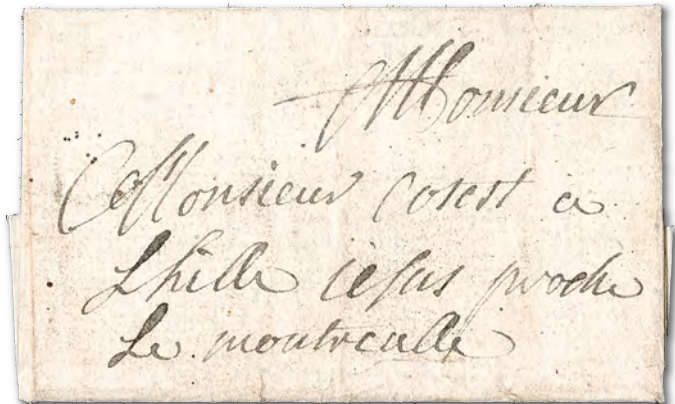 A Monsieur
Monsieur Cosest a
Lhille iesus proche
Le montrealle